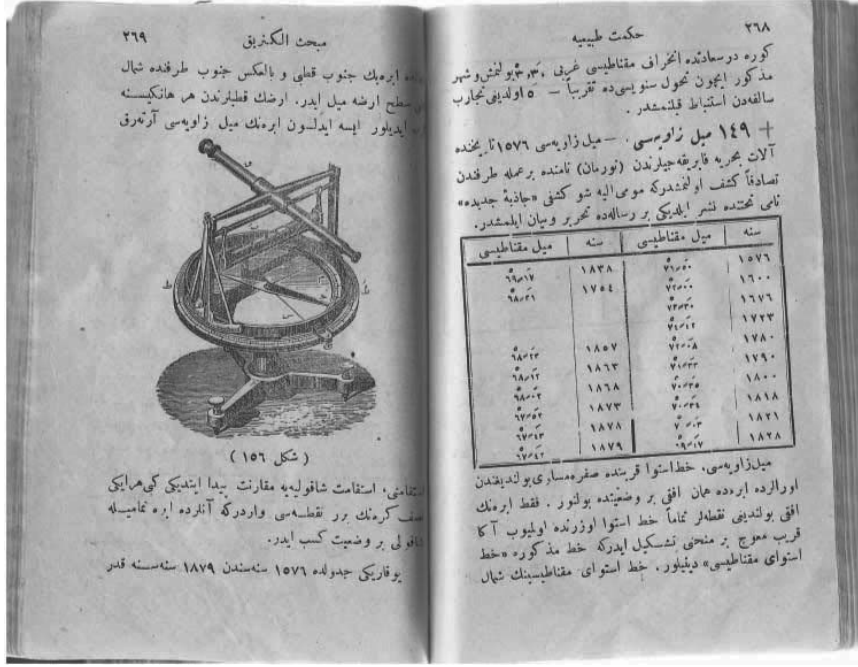 ٢٦٨
حكمت طبيعيه
كوره درسعادتده انحراف مقناطيسى غربى بولنمش و شهر
مذكور ايچون تحول سنويسى ده تقريباً — ٥ اولديغى تجارب
سالفه‌دن استنباط قيلنمشدر.
+ ١٤٩ ميل زاويه‌سى. — ميل زاويه‌سى ١٥٧٦ تاريخنده
آلات بحريه فابريقه‌جيلرندن (نورمان) نامنده بر عمله طرفندن
تصادفاً كشف اولنمشدركه مومى اليه شو كشفى «جاذبهٔ جديده»
نامى تحتنده نشر ايلديكى بر رساله‌ده تحرير و بيان ايلمشدر.
سنه | ميل مقناطيسى | سنه | ميل مقناطيسى
١٥٧٦ | ٧١َ٫٥٠ | ١٨٣٨ | ٦٩٫١٧
١٦٠٠ | ٧٢٫٠٠ | ١٧٥٤ | ٦٨٫٣١
١٦٧٦ | ٧٣٫٣٠
١٧٢٣ | ٧٤٫٤٢
١٧٨٠ | ٧٢٫٠٨ | ١٨٥٧ | ٦٨٫٢٣
١٧٩٠ | ٧١٫٣٣ | ١٨٦٣ | ٦٨٫١٢
١٨٠٠ | ٧٠٫٣٥ | ١٨٦٨ | ٦٨٫٠٢
١٨١٨ | ٧٠٫٣٤ | ١٨٧٣ | ٦٧٫٥٢
١٨٢١ | ٧٠٫٠٣ | ١٨٧٨ | ٦٧٫٤٣
١٨٢٨ | ١٨٧٩ | ٦٧٫٤٢
ميل زاويه‌سى، خط استوا قربنده صفره مساوى بولنديغندن
اورالرده ابره‌ده همان افقى بر وضعيتده بولنور. فقط ابره‌نك
افقى بولنديغى نقطه‌لر تماماً خط استوا اوزرنده اولميوب آكا
قريب معوج بر منحنى تشكيل ايدركه خط مذكوره «خط
استواى مقناطيسى» دينيلور. خط استواى مقناطيسينك شمال
مبحث الكتريق
٢٦٩
ابره‌نك جنوب قطبى و بالعكس جنوب طرفنده شمال
سطح ارضه ميل ايدر. ارضك قطبلرندن هر هانكيسنه
ايديلور ايسه ايدلسون ابره‌نك ميل زاويه‌سى آرته‌رق
(شكل ١٥٦)
استقامتى، استقامت شاقوليه‌يه مقارنت پيدا ايتديكى كى هر ايكى
نصف كره‌نك برر نقطه‌سى واردركه آنلرده ابره تماميله
شاقولى بر وضعيت كسب ايدر.
يوقاريكى جدولده ١٥٧٦ سنه‌سندن ١٨٧٩ سنه‌سنه قدر